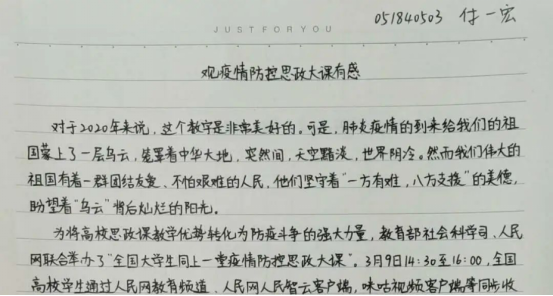 051840503 付一宏
JUST FOR YOU
观疫情防控思政大课有感
对于2020年来说,这个数字是非常美好的。可是,肺炎疫情的到来给我们的祖
国蒙上了一层乌云,笼罩着中华大地,突然间,天空黯淡,世界阴冷。然而我们伟大的
祖国有着一群团结友爱、不怕艰难的人民,他们坚守着“一方有难,八方支援”的美德,
盼望着“乌云”背后灿烂的阳光。
为将高校思政课教学优势转化为防疫斗争的强大力量,教育部社会科学司、人民
网联合举办了“全国大学生同上一堂疫情防控思政大课”。3月9日14:30至16:00,全国
高校学生通过人民网教育频道、人民网人民智云客户端,咪咕视频客户端等同步收